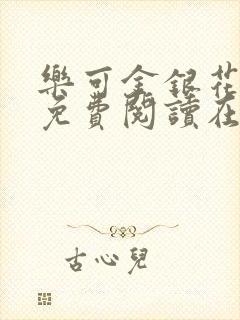 樂可金銀花
免費閱讀在
古心兒